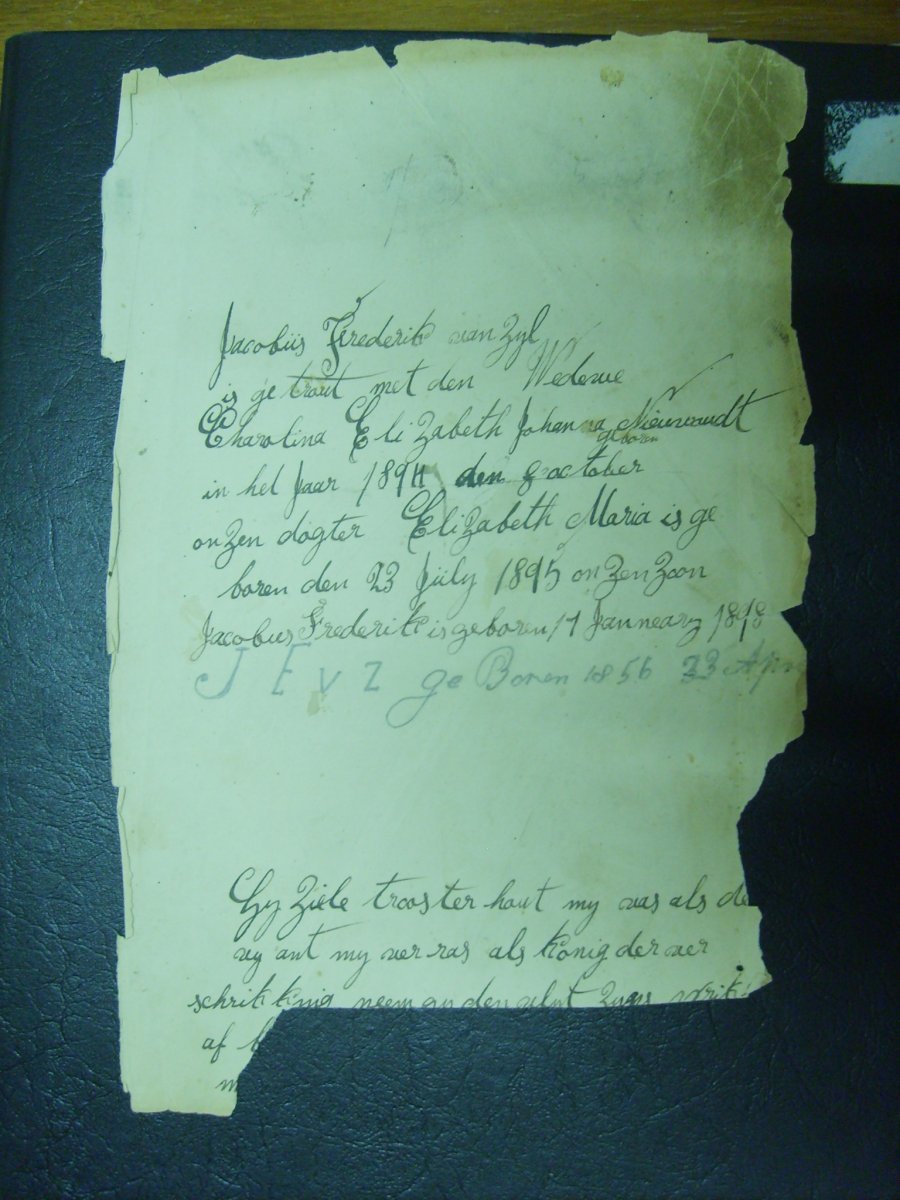 Jacobüs Frederik van Zyl
is ge trout met den Wedewe
Charolina Eli Zabeth Johanna Nieuwoudt
geboren
in het Jaar 1894 den 8 october
on Zen dogter EliZabeth Maria is ge
boren den 23 Jüly 1895 on Zen Zoon
Jacobus Frederik is geboren 17 Janneary 1898
J F v Z ge Boren 1856 23 Apr
Gy Ziele trooster hout my vas als de
vy ant my ver ras als König der ver
schrik king neem an den
af